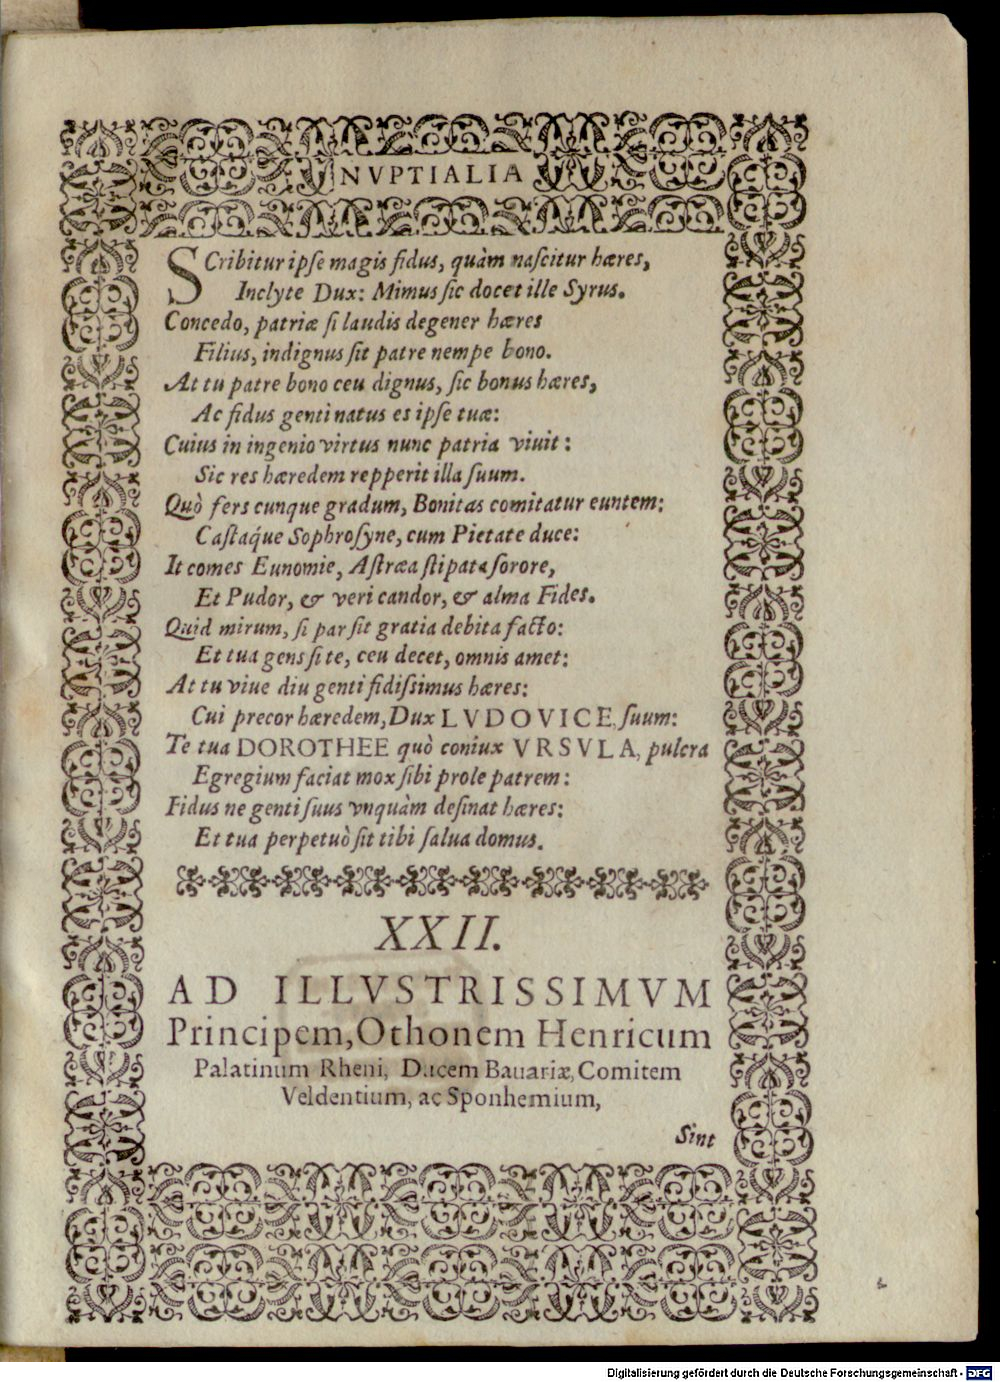 NVPTIALIA
SCribitur ipſe magis fidus, quàm naſcitur hæres,
Inclyte Dux: Mimus ſic docet ille Syrus.
Concedo, patriæ ſi laudis degener hæres
Filius, indignus ſit patre nempe bono.
At tu patre bono ceu dignus, ſic bonus hæres,
Ac fidus genti natus es ipſe tuæ:
Cuius in ingenio virtus nunc patria viuit:
Sic res hæredem repperit illa ſuum.
Quò fers cunque gradum, Bonitas comitatur euntem:
Caſtaq́ue Sophroſyne, cum Pietate duce:
It comes Eunomie, Aſtræa ſtipata ſorore,
Et Pudor, & veri candor, & alma Fides.
Quid mirum, ſi par ſit gratia debita facto:
Et tua gens ſi te, ceu decet, omnis amet:
At tu viue diu genti fidiſsimus hæres:
Cui precor hæredem, Dux LVDOVICE, ſuum:
Te tua DOROTHEE quò coniux VRSVLA, pulcra
Egregium faciat mox ſibi prole patrem:
Fidus ne genti ſuus vnquàm deſinat hæres:
Et tua perpetuò ſit tibi ſalua domus.
XXII.
AD ILLVSTRISSIMVM
Principem, Othonem Henricum
Palatinum Rheni, Ducem Bauariæ, Comitem
Veldentium, ac Sponhemium,
Sint
Digitalisierung gefördert durch die Deutsche Forschungsgemeinschaft - DFG